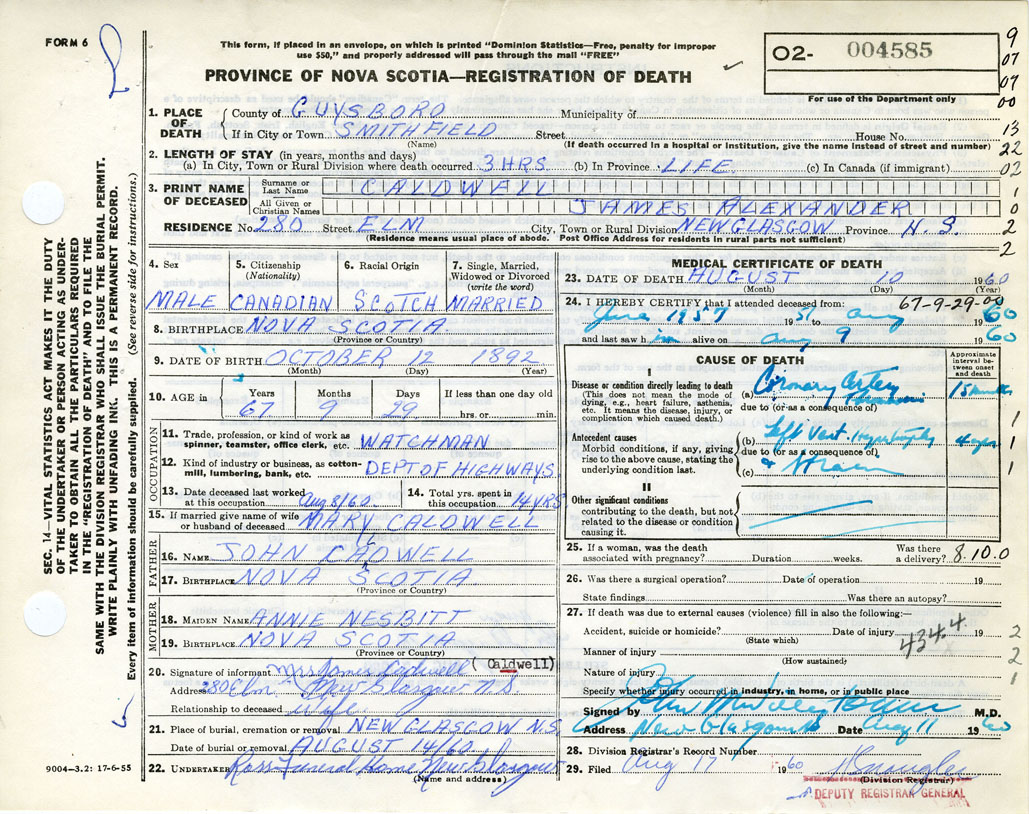 FORM 6
This form, if placed in an envelope, on which is printed "Dominion Statistics—Free, penalty for improper
use $50," and properly addressed will pass through the mail "FREE"
PROVINCE OF NOVA SCOTIA—REGISTRATION OF DEATH
02- 004585
For use of the Department only
9
07
07
00
13
22
02
1
0
2
2
SEC. 14—VITAL STATISTICS ACT MAKES IT THE DUTY
OF THE UNDERTAKER OR PERSON ACTING AS UNDER-
TAKER TO OBTAIN ALL THE PARTICULARS REQUIRED
IN THE "REGISTRATION OF DEATH" AND TO FILE THE
SAME WITH THE DIVISION REGISTRAR WHO SHALL ISSUE THE BURIAL PERMIT.
WRITE PLAINLY WITH UNFADING INK. THIS IS A PERMANENT RECORD.
Every item of information should be carefully supplied. (See reverse side for instructions.)
1. PLACE OF DEATH County of GUYSBORO Municipality of
If in City or Town SMITHFIELD Street House No.
(Name) (If death occurred in a hospital or institution, give the name instead of street and number)
2. LENGTH OF STAY (in years, months and days)
(a) In City, Town or Rural Division where death occurred 3 HRS (b) In Province LIFE (c) In Canada (if immigrant)
3. PRINT NAME OF DECEASED Surname or Last Name CALDWELL
All Given or Christian Names JAMES ALEXANDER
RESIDENCE No. 280 Street ELM City, Town or Rural Division NEW GLASGOW Province N.S.
(Residence means usual place of abode. Post Office Address for residents in rural parts not sufficient)
4. Sex 5. Citizenship (Nationality) 6. Racial Origin 7. Single, Married, Widowed or Divorced (write the word)
MALE CANADIAN SCOTCH MARRIED
8. BIRTHPLACE NOVA SCOTIA
(Province or Country)
9. DATE OF BIRTH OCTOBER 12 1892
(Month) (Day) (Year)
10. AGE in Years Months Days If less than one day old
67 9 29 hrs. or min.
OCCUPATION
11. Trade, profession, or kind of work as spinner, teamster, office clerk, etc. WATCHMAN
12. Kind of industry or business, as cotton-mill, lumbering, bank, etc. DEPT OF HIGHWAYS
13. Date deceased last worked at this occupation Aug 8/60 14. Total yrs. spent in this occupation 14 YRS
15. If married give name of wife or husband of deceased MARY CALDWELL
FATHER
16. NAME JOHN CADWELL
17. BIRTHPLACE NOVA SCOTIA
(Province or Country)
MOTHER
18. MAIDEN NAME ANNIE NESBITT
19. BIRTHPLACE NOVA SCOTIA
(Province or Country)
20. Signature of informant Mrs James Cadwell (Caldwell)
Address 280 Elm New Glasgow N.S.
Relationship to deceased wife
21. Place of burial, cremation or removal NEW GLASGOW N.S.
Date of burial or removal AUGUST 14/60
22. UNDERTAKER Ross Funeral Home New Glasgow
(Name and address)
9004—3.2: 17-6-55
MEDICAL CERTIFICATE OF DEATH
23. DATE OF DEATH AUGUST 10 1960
(Month) (Day) (Year)
67-9-29-00
24. I HEREBY CERTIFY that I attended deceased from:
June 1957 1957 aug 1960
and last saw h im alive on aug 9 1960
CAUSE OF DEATH
Approximate interval between onset and death
I
Disease or condition directly leading to death
(This does not mean the mode of dying, e.g., heart failure, asthenia, etc. It means the disease, injury, or complication which caused death.)
(a) Coronary artery 15
due to (or as a consequence of)
Antecedent causes
Morbid conditions, if any, giving rise to the above cause, stating the underlying condition last.
(b) Left Vent. Hypertrophy
due to (or as a consequence of)
(c) & Strain
1
1
1
II
Other significant conditions
contributing to the death, but not related to the disease or condition causing it.
25. If a woman, was the death associated with pregnancy? Duration weeks. Was there a delivery? 8.10.0
26. Was there a surgical operation? Date of operation 19
State findings Was there an autopsy?
27. If death was due to external causes (violence) fill in also the following:—
Accident, suicide or homicide? Date of injury 19 2
(State which) 434.4
Manner of injury 2
(How sustained)
Nature of injury 1
Specify whether injury occurred in industry, in home, or in public place
Signed by M.D.
Address New Glasgow NS Date Aug 11 1960
28. Division Registrar's Record Number
29. Filed Aug 17 1960
(Division Registrar)
DEPUTY REGISTRAR GENERAL